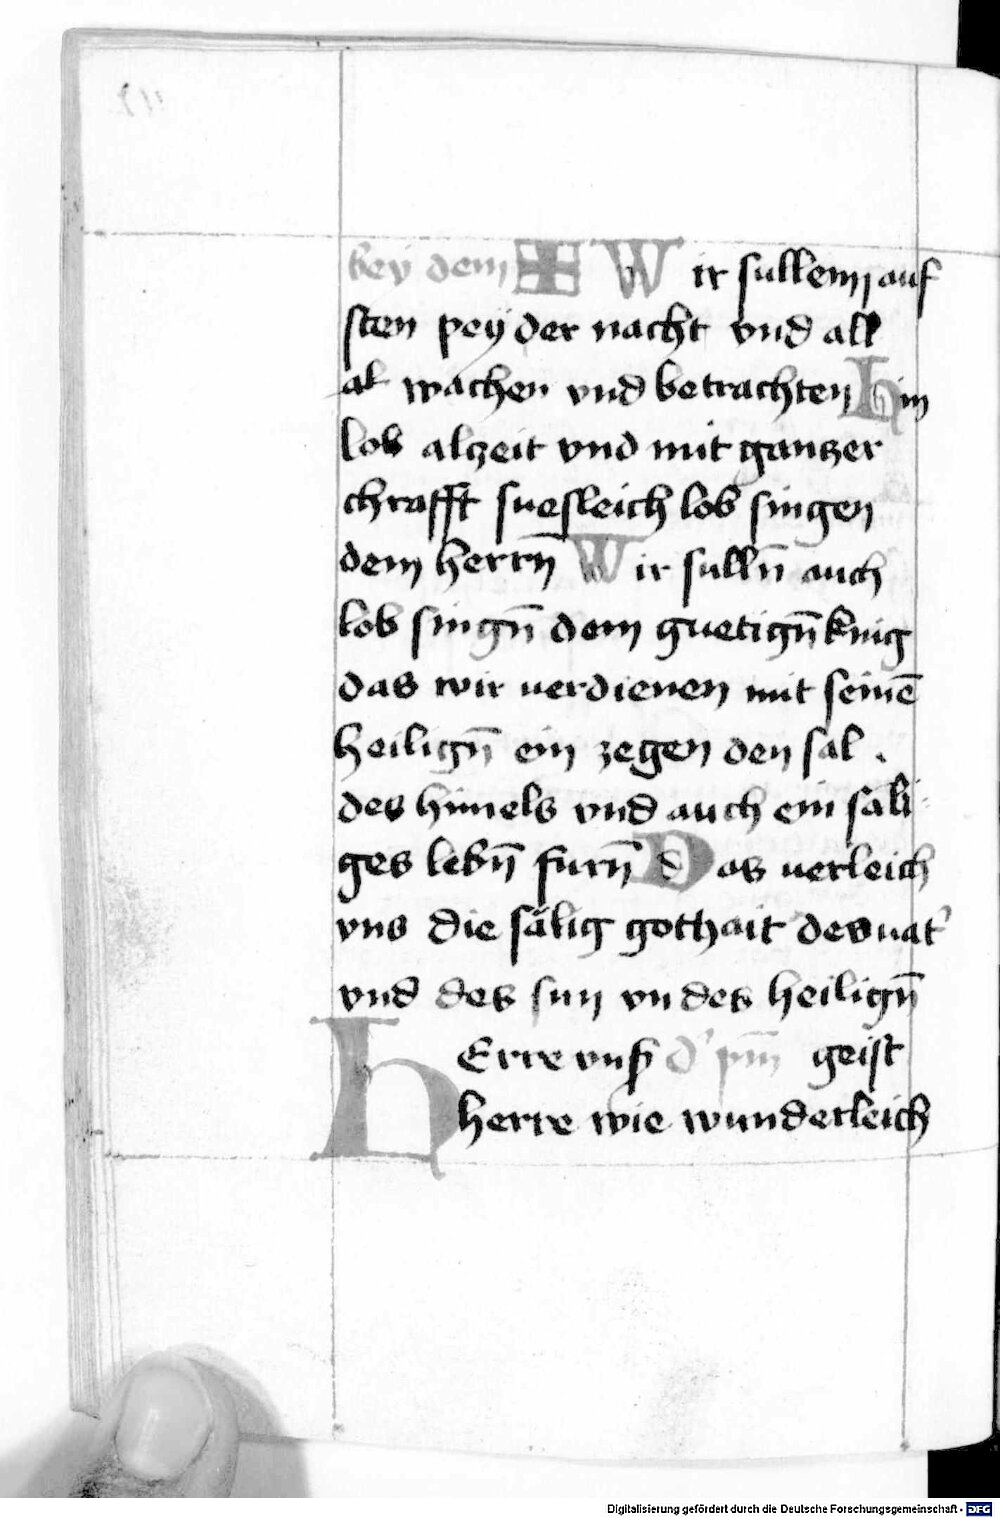 bey dem ✚ Wir sullen auf
sten pey der nacht vnd all
al wachen vnd betrachten Him
lob alzeit vnd mit gantzer
chrafft suesleich lob singen
dem herrn̄ Wir sulln̄ auch
lob singn̄ dem guetign̄ knig
das wir verdienen mit seinē
heilign̄ ein zegen den sal .
des himels vnd auch ein säli
ges lebn̄ furn̄ Das verleich
vns die sälig gothait des uat'
vnd des sun vn des heilign̄
HErre vnß d' pm̄ geist
herre wie wunderleich
Digitalisierung gefördert durch die Deutsche Forschungsgemeinschaft - DFG